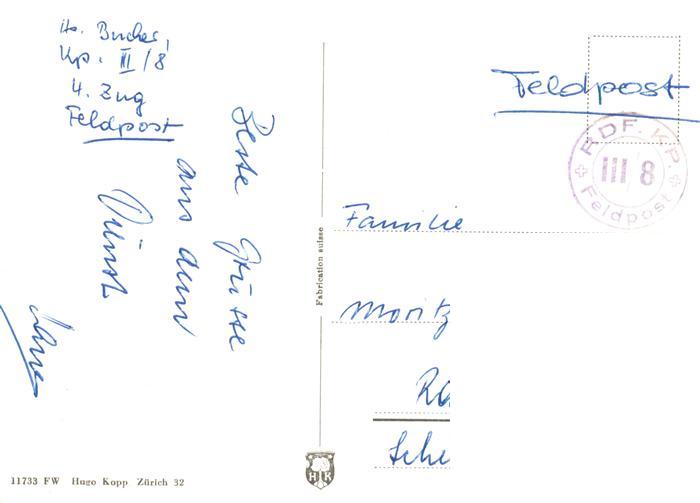 Hs. Bucher,
Kp. III/8
4. Zug
Feldpost
Beste Grüsse
aus dem
Dienst
Hans
Fabrication suisse
11733 FW Hugo Kopp Zürich 32
HK
Feldpost
RDF. KP.
III 8
Feldpost
Familie
Moritz
Ra
Sche